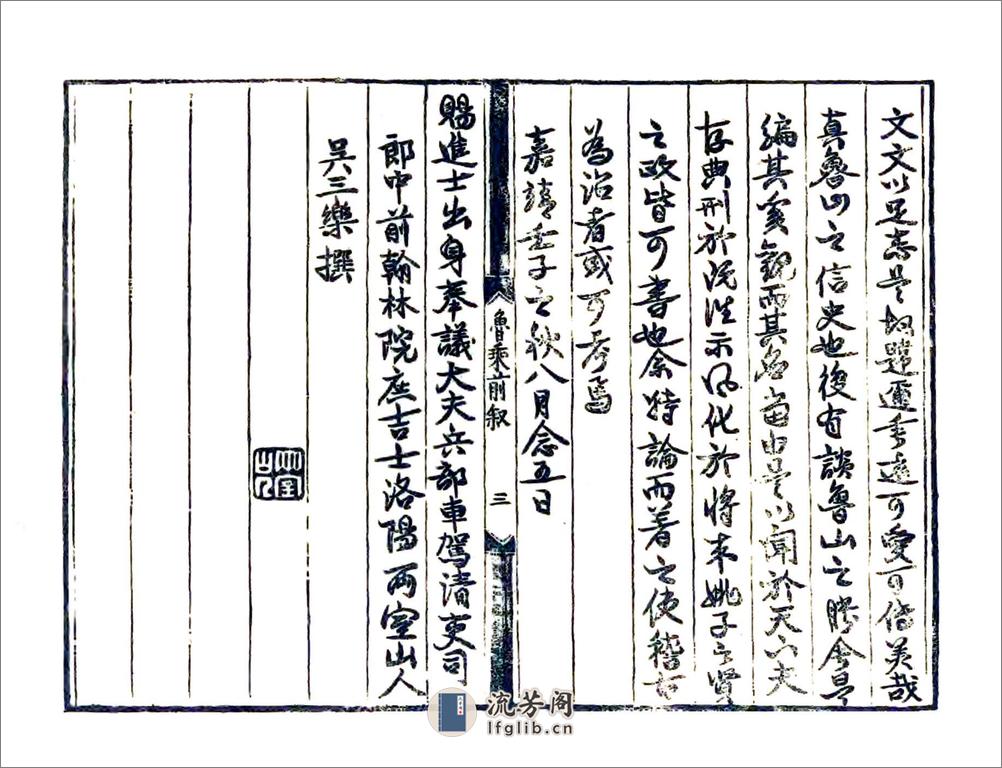 文文以足志是故蹤邇垂遠可愛可傳美哉
真魯山之信史也後有談魯山之勝舍是
編其奚觀而其名當由是以聞於天下夫
存典刑於既往示風化於將來姚子之賢
之政皆可書也余特論而著之使稽古
為治者或可考焉
嘉靖壬子之秋八月念五日
魯乘前叙
三
賜進士出身奉議大夫兵部車駕清吏司
郎中前翰林院庶吉士洛陽兩室山人
吳三樂撰
流芳阁
lfglib.cn